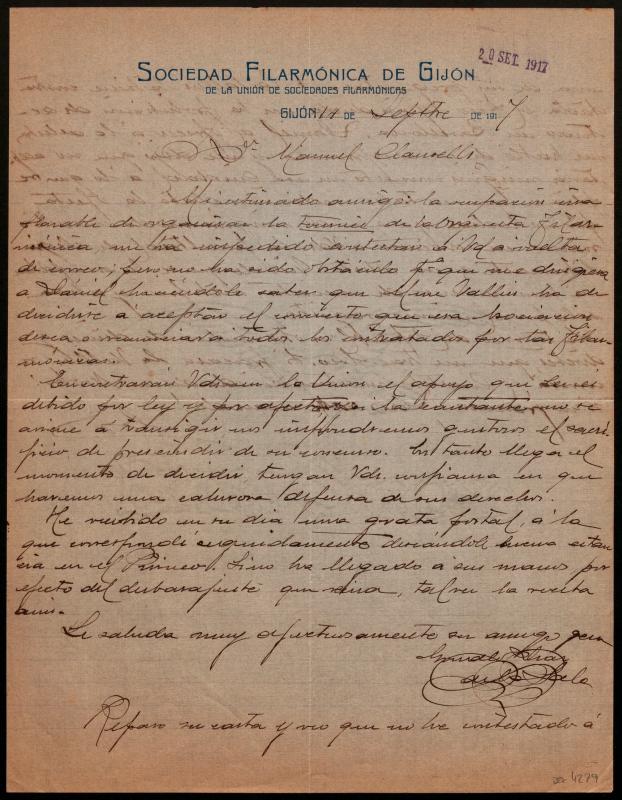 20 SET. 1917
SOCIEDAD FILARMÓNICA DE GIJÓN
DE LA UNIÓN DE SOCIEDADES FILARMÓNICAS
GIJÓN 17 DE Sepbre DE 1917
Manuel Clausells
Mi estimado amigo: la ocupación
de organizar la tournée de la Orquesta Filar-
mónica me ha impedido contestar á Vd á vuelta
de correo, pero no ha sido obstáculo pª que me dirigiera
a Daniel haciéndole saber que Mme Vallin ha de
decidirse a aceptar el concierto que esa Asociación
desea o renunciar á todos los contratados por las Filar-
mónicas.
Encontrarán Vds en la Unión el apoyo que les es
debido por ley y por afecto; si la cantante no se
aviene á transigir nos impondremos gustosos el sacri-
ficio de prescindir de su concurso. En tanto llega el
momento de decidir tengan Vds. confianza en que
haremos una calurosa defensa de sus derechos.
He recibido en su día una grata postal, á la
que correspondí seguidamente deseándole buena estan-
cia en el Pirineo. Si no ha llegado á sus manos por
efecto del desbarajuste que reina, tal vez la reciba
aun.
Le saluda muy afectuosamente su amigo
Reparo su carta y veo que no he contestado á
4279